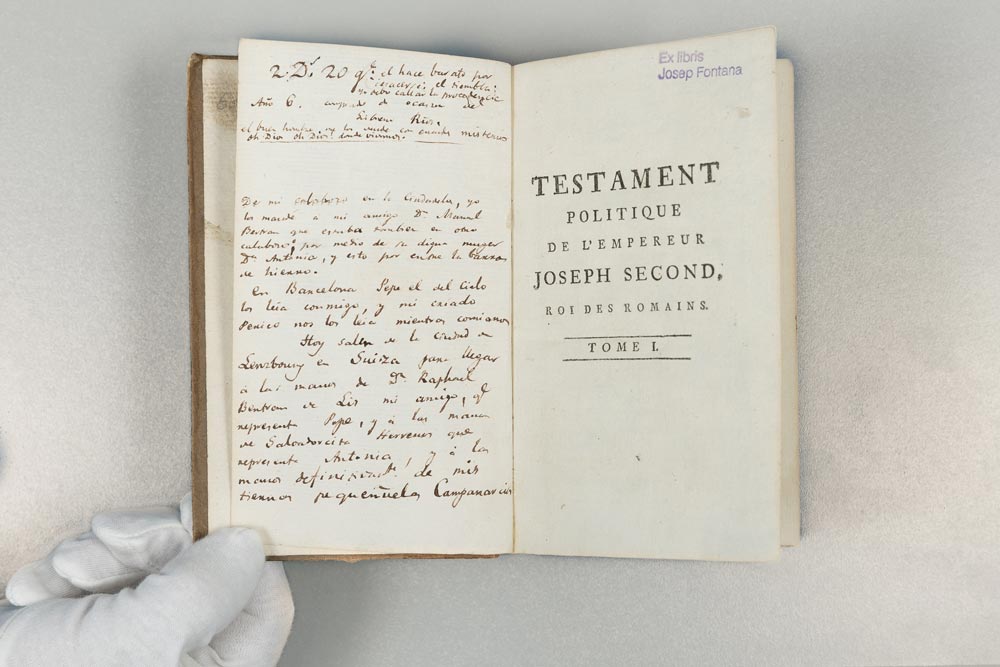 2 Ds. 20 qe. el hace barato por
el tiembla:
se debe callar la procedencia
Año 6. comprado de ocasion
Febrero
el buen hombre, me los vende con mucho misterio
oh Dios oh Dios! donde vivimos.
De mi calabozo en la Ciudadela, yo
los mandé a mi amigo Dn. Manuel
Bertran que estaba tambien en otro
calabozo; por medio de su digna muger
Da. Antonia, y esto por entre la barras
de hierro.
En Barcelona Pepe el del Cielo
los leía conmigo, y mi criado
Perico nos los leía mientras comiamos
Hoy salen de la ciudad de
Lenzbourg en Suiza para llegar
à las manos de Dn. Raphael
Bertran de Lis mi amigo, qe
representa Pepe, y à las manos
de Salvadorcita Herreros que
representa Antonia, y à las
manos definitivamte. de mis
tiernos pequeñuelos Campanarios
Ex libris
Josep Fontana
TESTAMENT
POLITIQUE
DE L'EMPEREUR
JOSEPH SECOND,
ROI DES ROMAINS.
TOME I.